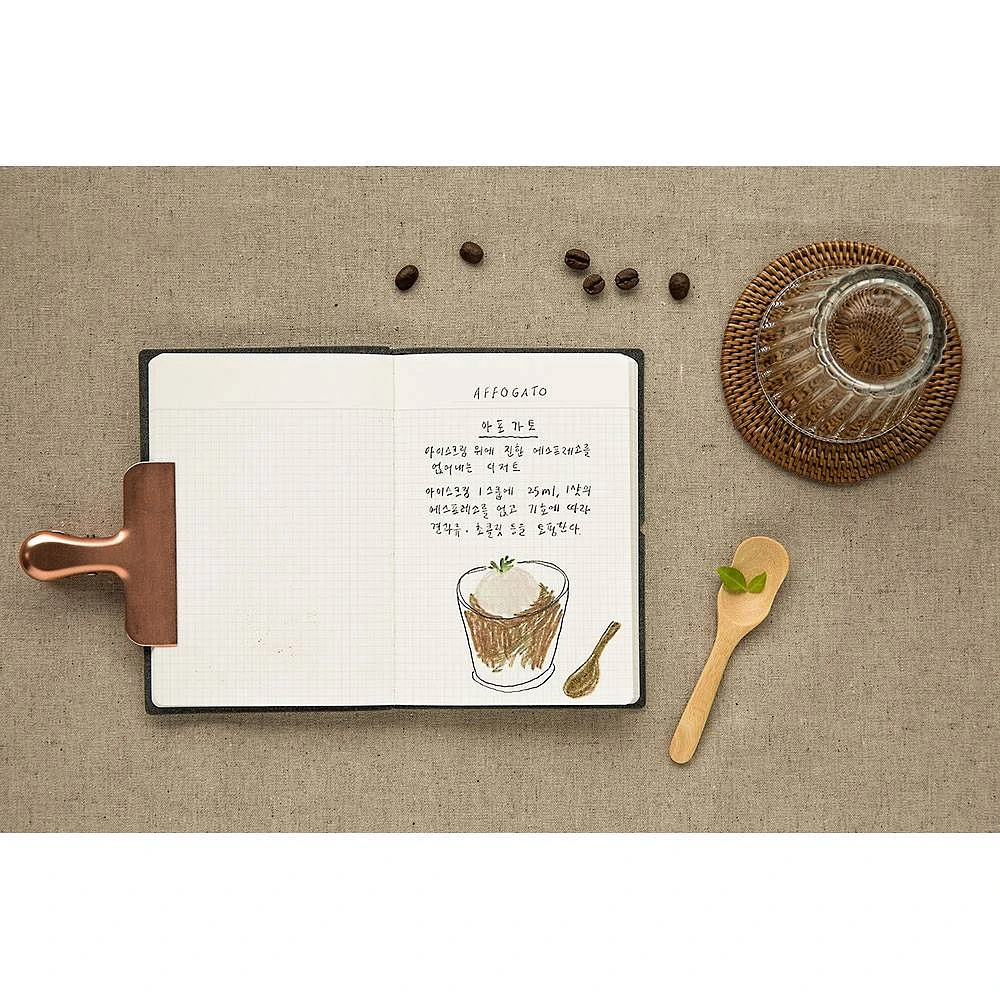 AFFOGATO
아포가토
아이스크림 위에 진한 에스프레소를
얹어내는 디저트
아이스크림 1스쿱에 25ml, 1샷의
에스프레소를 얹고 기호에 따라
견과류·초콜릿 등을 토핑한다.